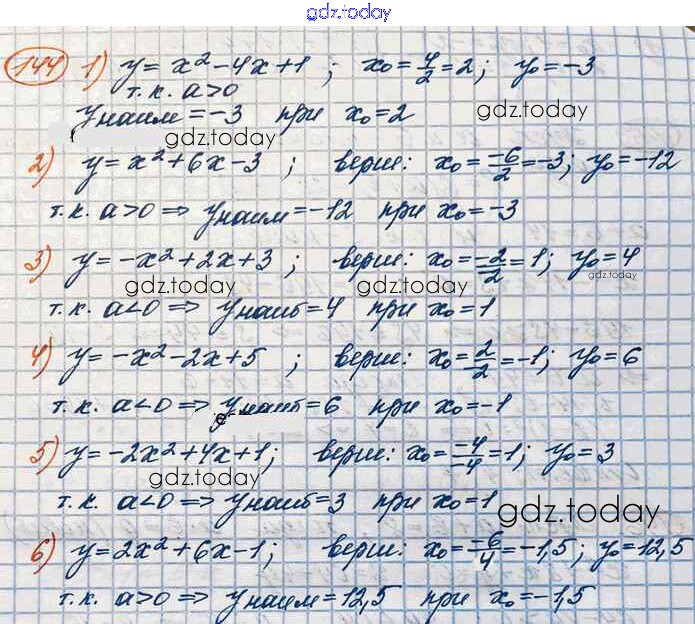 gdz.today
144 1) y = x² - 4x + 1 ; x₀ = 4/2 = 2 ; y₀ = -3
т.к. a>0
yнаим = -3 при x₀ = 2
gdz.today
gdz.today
2) y = x² + 6x - 3 ; верш: x₀ = -6/2 = -3; y₀ = -12
т.к. a>0 => yнаим = -12 при x₀ = -3
3) y = -x² + 2x + 3 ; верш: x₀ = -2/-2 = 1; y₀ = 4
gdz.today
gdz.today
gdz.today
т.к. a<0 => yнаиб = 4 при x₀ = 1
4) y = -x² - 2x + 5 ; верш: x₀ = 2/-2 = -1; y₀ = 6
т.к. a<0 => yнаиб = 6 при x₀ = -1
5) y = -2x² + 4x + 1; верш: x₀ = -4/-4 = 1; y₀ = 3
gdz.today
т.к. a<0 => yнаиб = 3 при x₀ = 1
gdz.today
6) y = 2x² + 6x - 1; верш: x₀ = -6/4 = -1,5; y₀ = 12,5
т.к. a>0 => yнаим = 12,5 при x₀ = -1,5